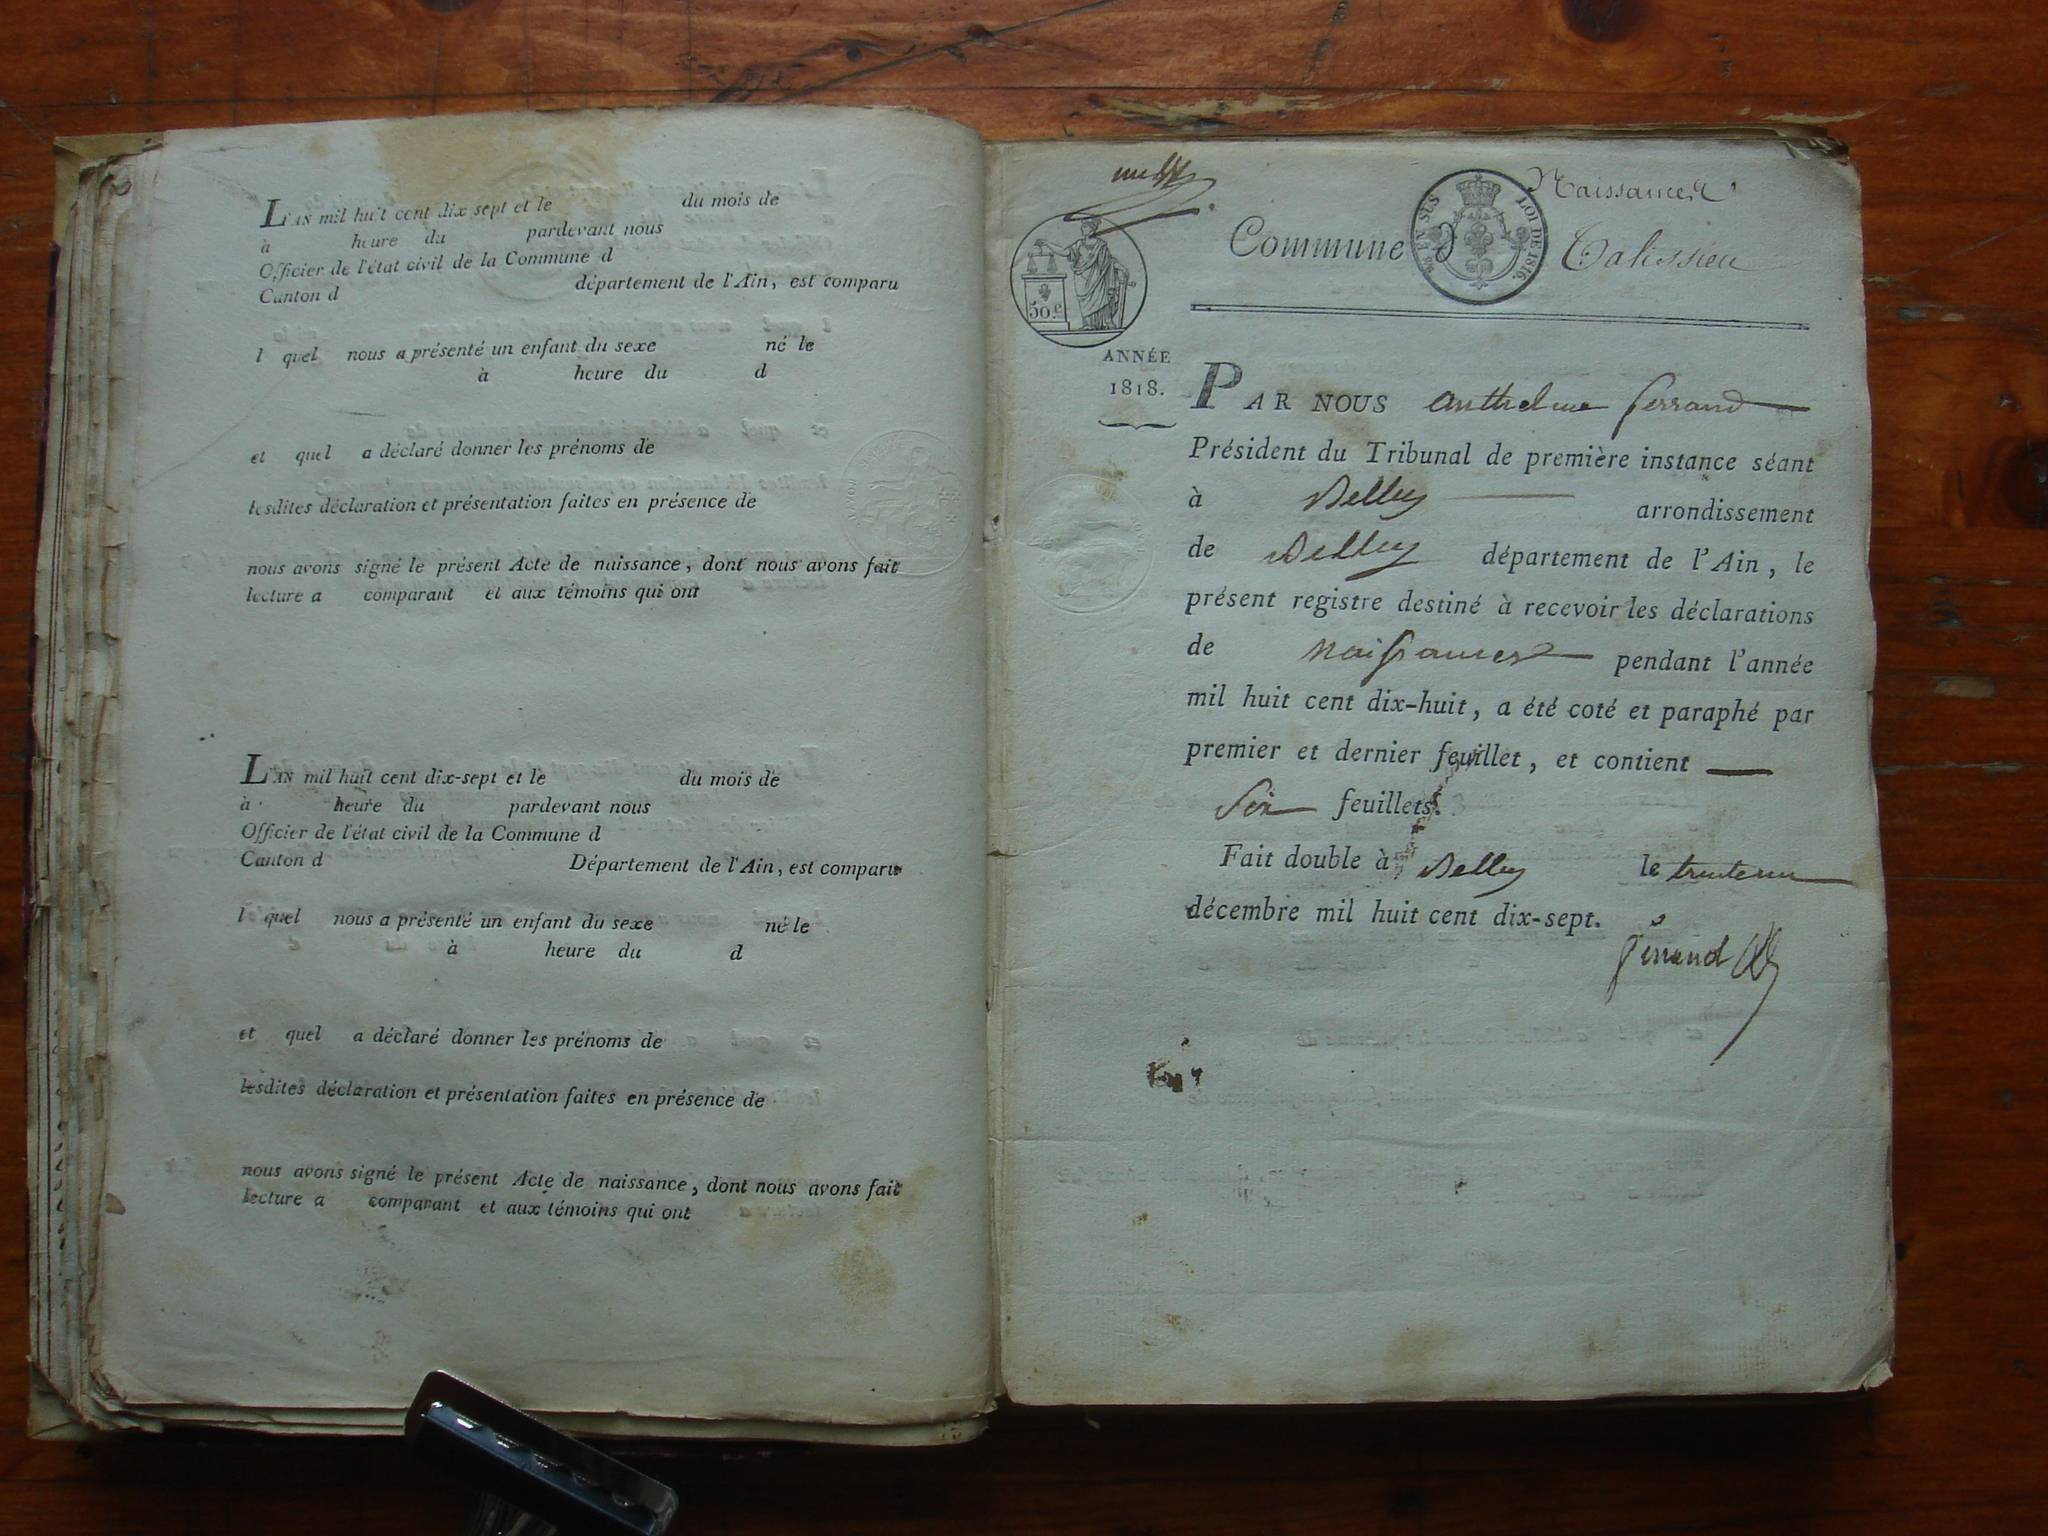 L'AN mil huit cent dix sept et le du mois de
à heure du pardevant nous
Officier de l'état civil de la Commune d
Canton d département de l'Ain, est comparu
l quel nous a présenté un enfant du sexe né le
à heure du d
et quel a déclaré donner les prénoms de
lesdites déclaration et présentation faites en présence de
nous avons signé le présent Acte de naissance, dont nous avons fait
lecture a comparant et aux témoins qui ont
L'AN mil huit cent dix-sept et le du mois de
à heure du pardevant nous
Officier de l'état civil de la Commune d
Canton d Département de l'Ain, est comparu
l quel nous a présenté un enfant du sexe né le
à heure du d
et quel a déclaré donner les prénoms de
lesdites déclaration et présentation faites en présence de
nous avons signé le présent Acte de naissance, dont nous avons fait
lecture a comparant et aux témoins qui ont
Naissances
Commune d Talissieu
LOI DE 1816.
50.c
ANNÉE
1818.
PAR NOUS Anthelme Ferrand
Président du Tribunal de première instance séant
à Belley arrondissement
de Belley département de l'Ain, le
présent registre destiné à recevoir les déclarations
de naissances pendant l'année
mil huit cent dix-huit, a été coté et paraphé par
premier et dernier feuillet, et contient
Six feuillets.
Fait double à Belley le trente un
décembre mil huit cent dix-sept.